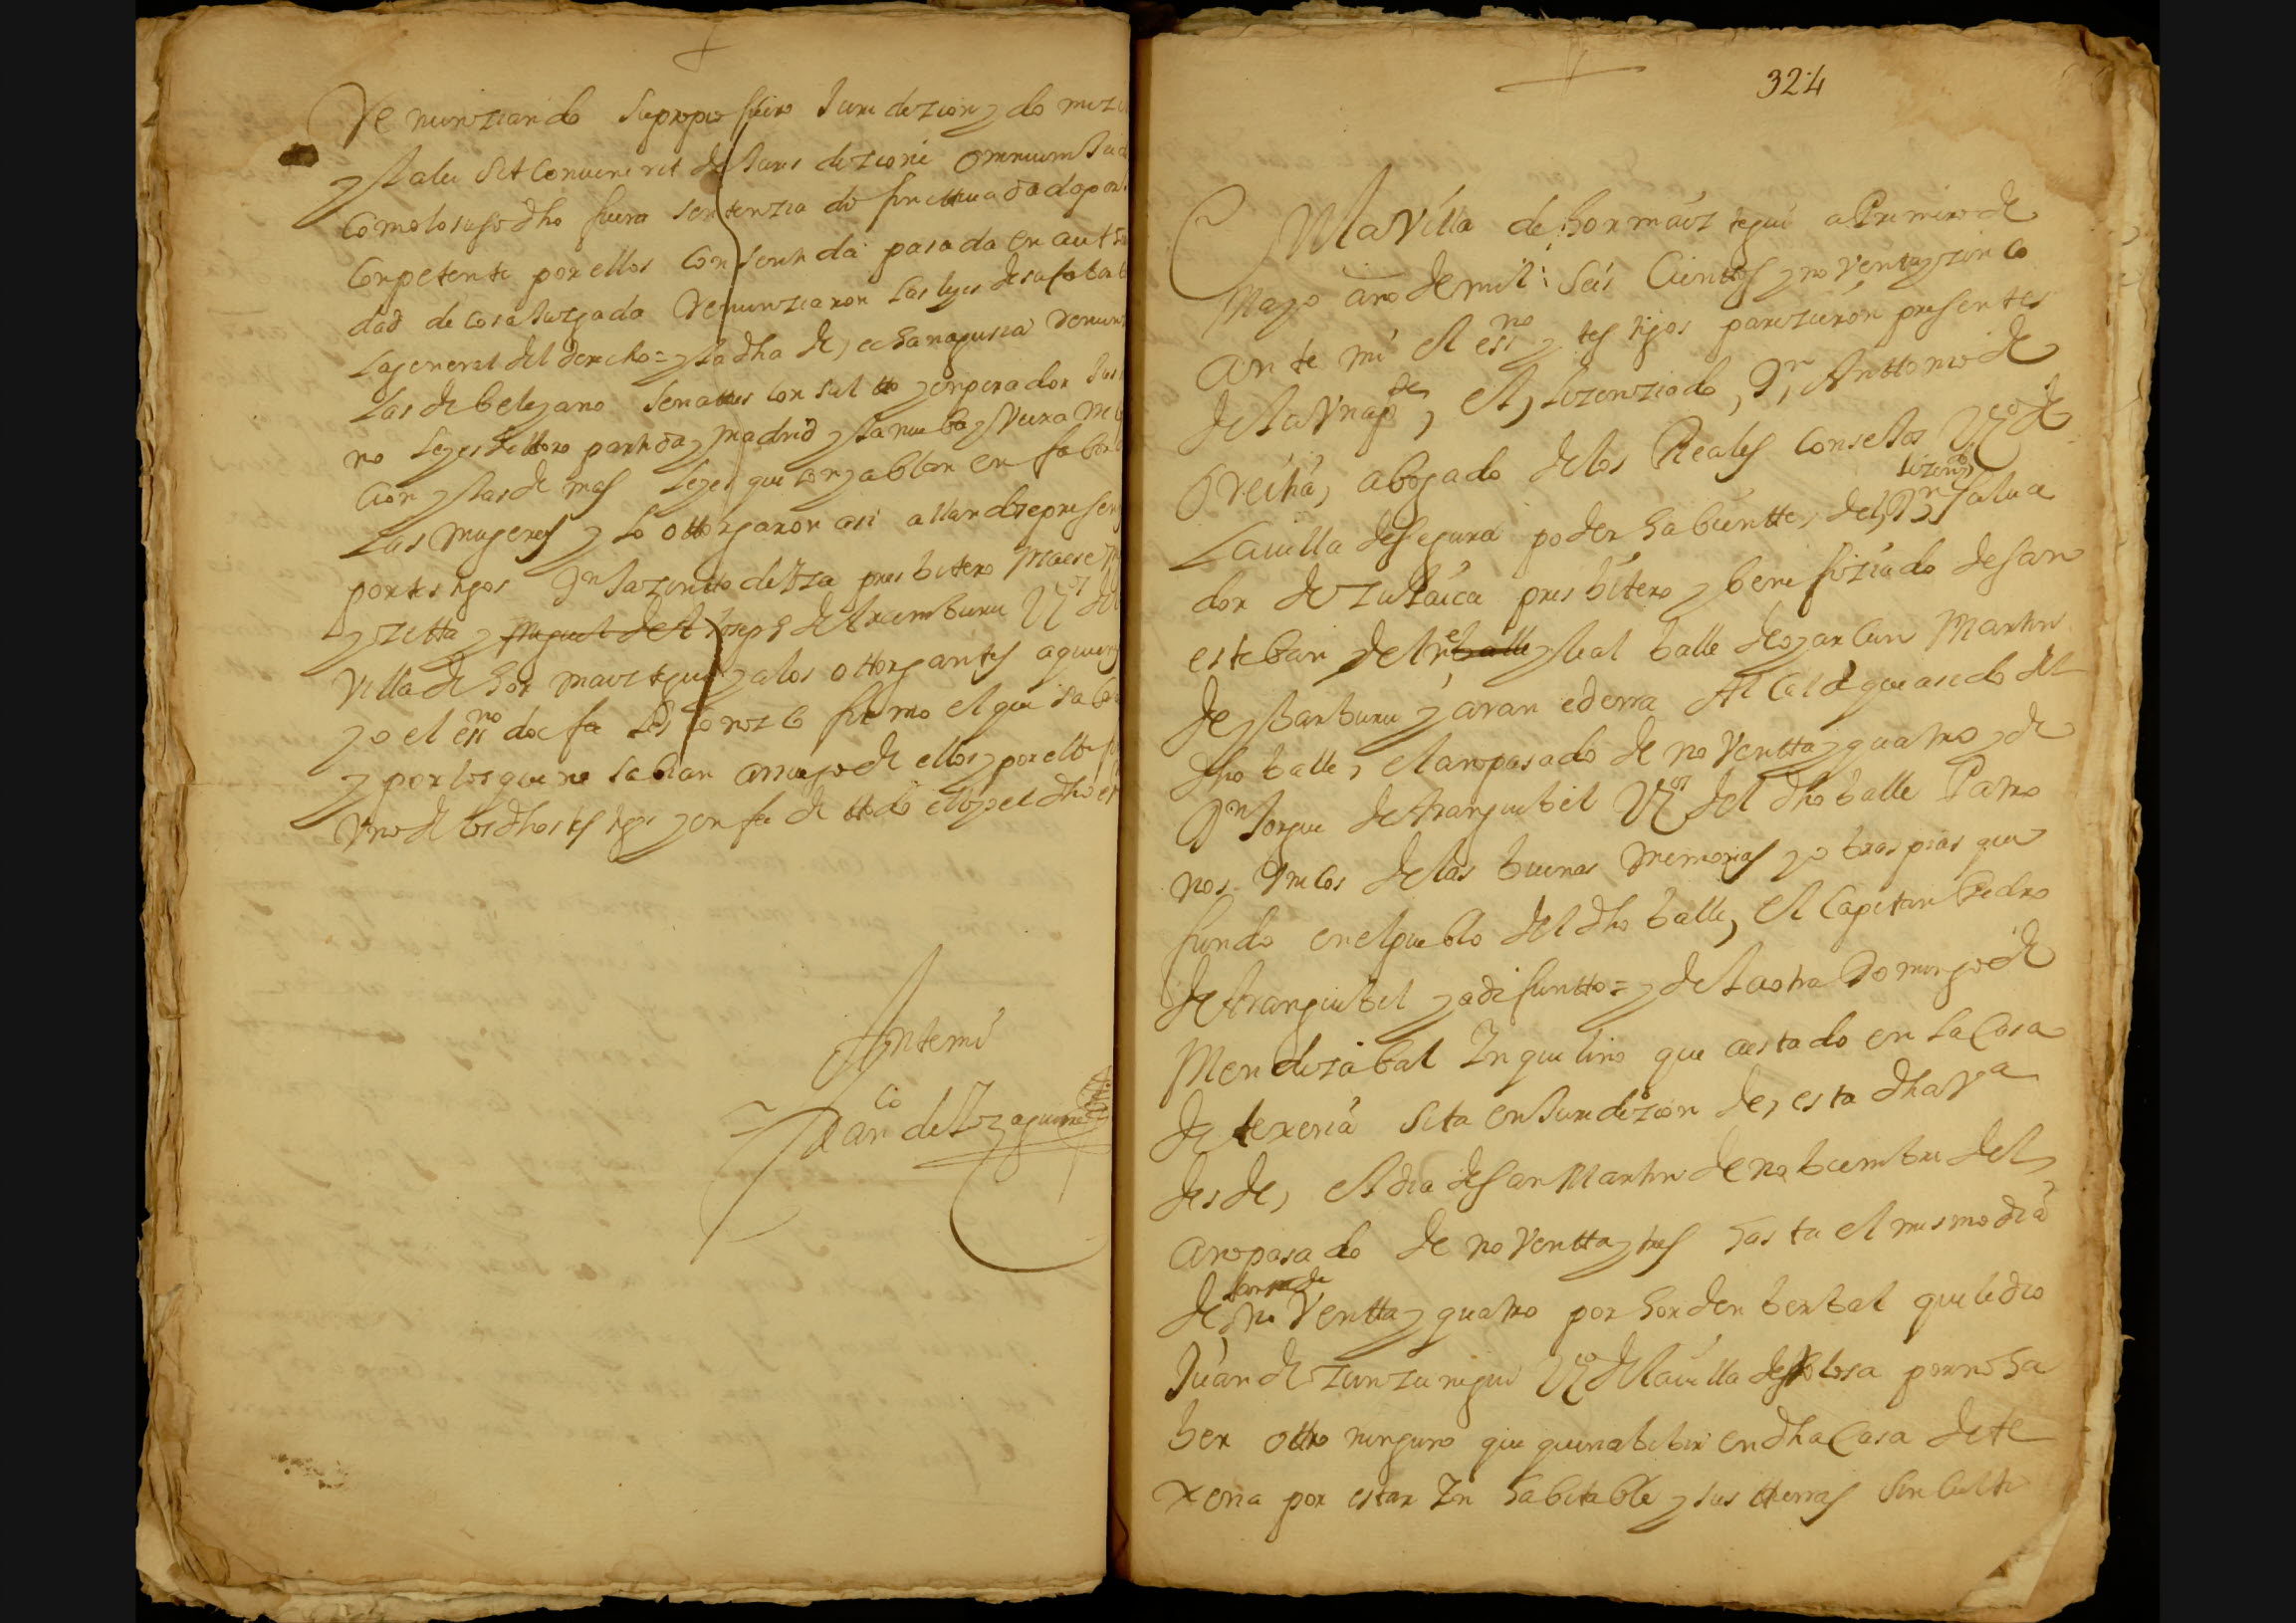 Renunziando su propio fuero Juridizion y domizi
y la lei sit Convenerit de Juris dizioni omnium Jud
Como lo susodho fuera sentenzia difinittiva dada por
Conpetente por ellos Consentida pasada en autori
dad de cosa Juzgada Renunziaron las leyes de su fabor
la general del derecho = y la dha de echanagusia renun
las de beleyano senattus consultto y enperador Jus
no leyes de ttoro partida y madrid y la nueba y Vieja
cion y las de mas leyes que con y ablan en fabor
las mugeres y lo ottorgaron asi allandose presen
por testigos Dn Jazintto de presbitero
yzetta y Miguel de A Joseph de Aramburu Vzos de
Villa de hormaiztegui y a los ottorgantes a quien
yo el essno doi fee les conozco firmo el que sabia
y por los que no sabian a ruego de ellos y por ello
Uno de los dhos testigos y en fee de ttodo ello yo el dho es
Ante mi
Franco de Yzaguirre
324
En la Villa de hormaiztegui a Primero de
Mayo año de mil i seis Cienttos y noventa y zinco
ante mi el essno y testigos parezieron presentes
de la Una pte, el Lizenziado Dn Anttonio de
Oreitia, abogado de los Reales Consejos Vzo de
lizendo
La villa de Segura poder habientte, del Dn Salua
dor de Zuláica presbitero y benefiziado de San
esteban de el Ne balle y leal balle de oyarcun Martin
de ybarburu y aran ederra Alcalde que a sido del
dho balle, el año pasado de noventta y quatro y de
Dn Jorge de Aranguibel Vzos del dho balle Patro
nos Unicos de las buenas memorias y obras pias que
fundo en el pueblo del dho balle, el Capitan Pedro
de Aranguibel ya difuntto = y de la otra Domingo de
Mendizábal Inquilino que a estado en la Casa
de texeria sita en Juridizion de esta dha Va
desde, el dia de San Martin de nobiembre del
año pasado de noventta y tres hasta el mismo dia
de noventta y quatro por horden berbal que le dio
Juan de Zunzunegui Vzo de la villa de tolosa por no ha
ber ottro ninguno que quiera bibir en dha Casa de te
xeria por estar Inhabitable y sus tierras sin culti